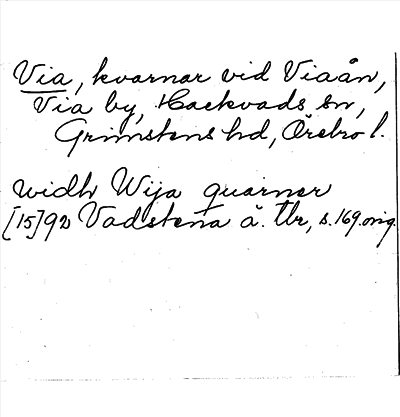 Via, kvarnar vid Viaån,
Via by, Hackvads sn,
Grimstens hd, Örebro l.
widh Wija quarner
[15]92 Vadstena å. Tbr, s. 169. orig.